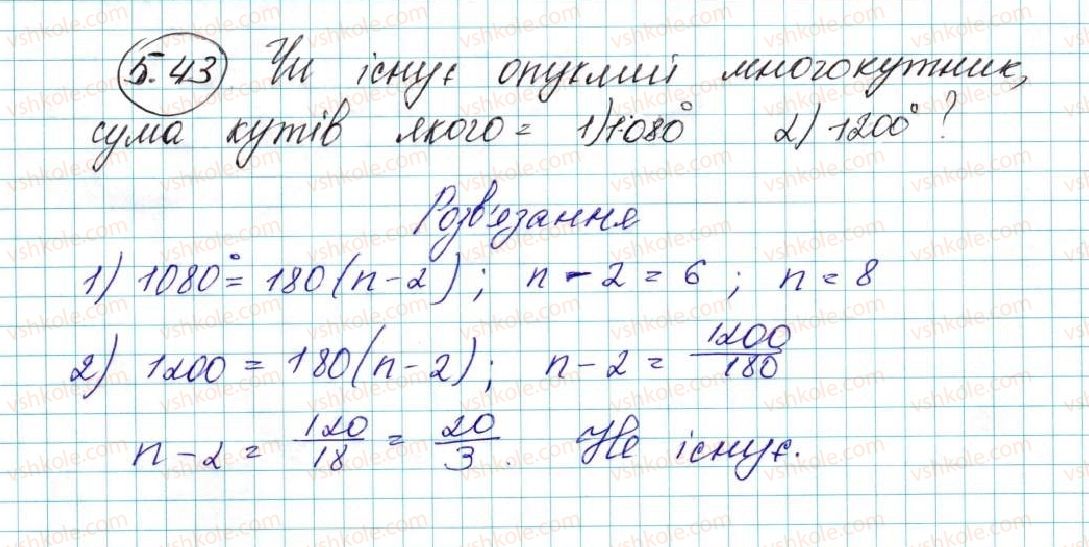 5.43. Чи існує опуклий многокутник,
сума кутів якого = 1) 1080° 2) 1200°?
Розв'язання
1) 1080° = 180(n-2); n-2=6; n=8
2) 1200 = 180(n-2); n-2 = 1200/180
n-2 = 120/18 = 20/3. Не існує.